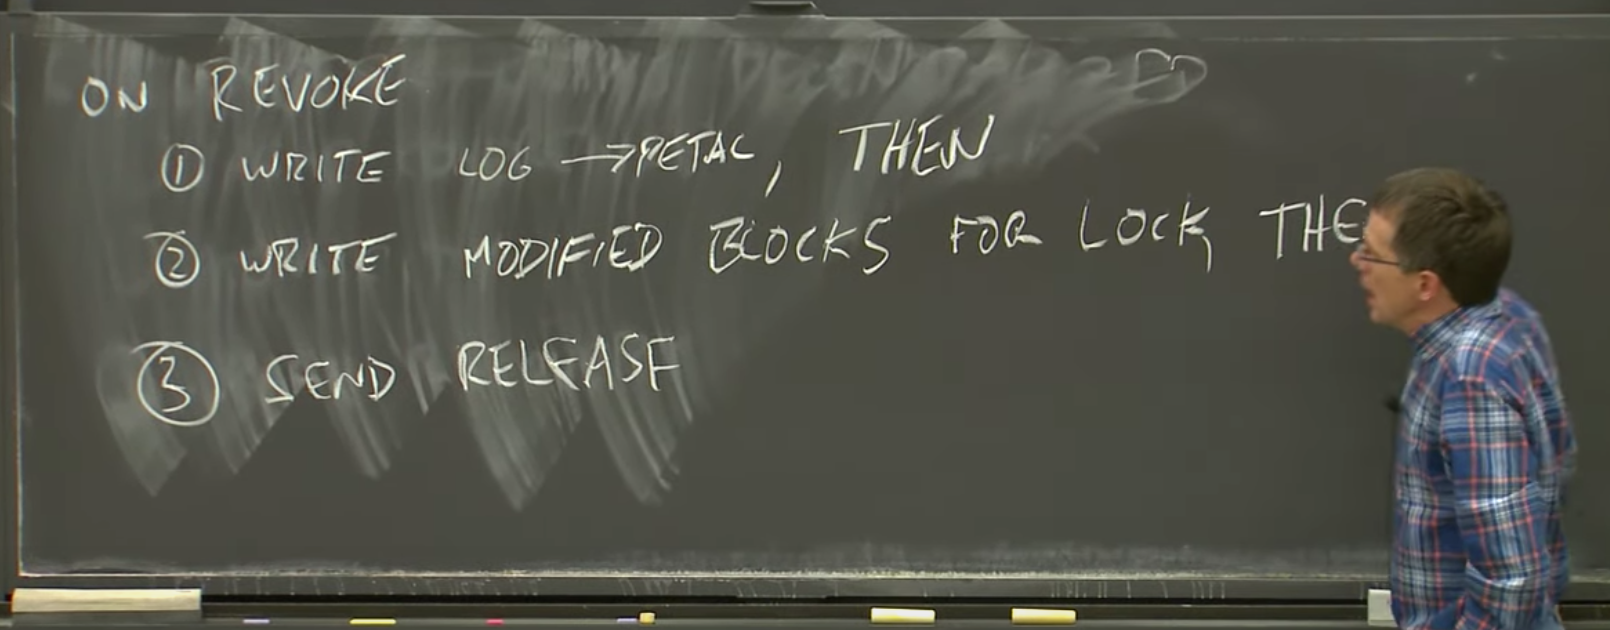 ON REVOKE
① WRITE LOG → PETAL, THEN
② WRITE MODIFIED BLOCKS FOR LOCK, THE
③ SEND RELEASE